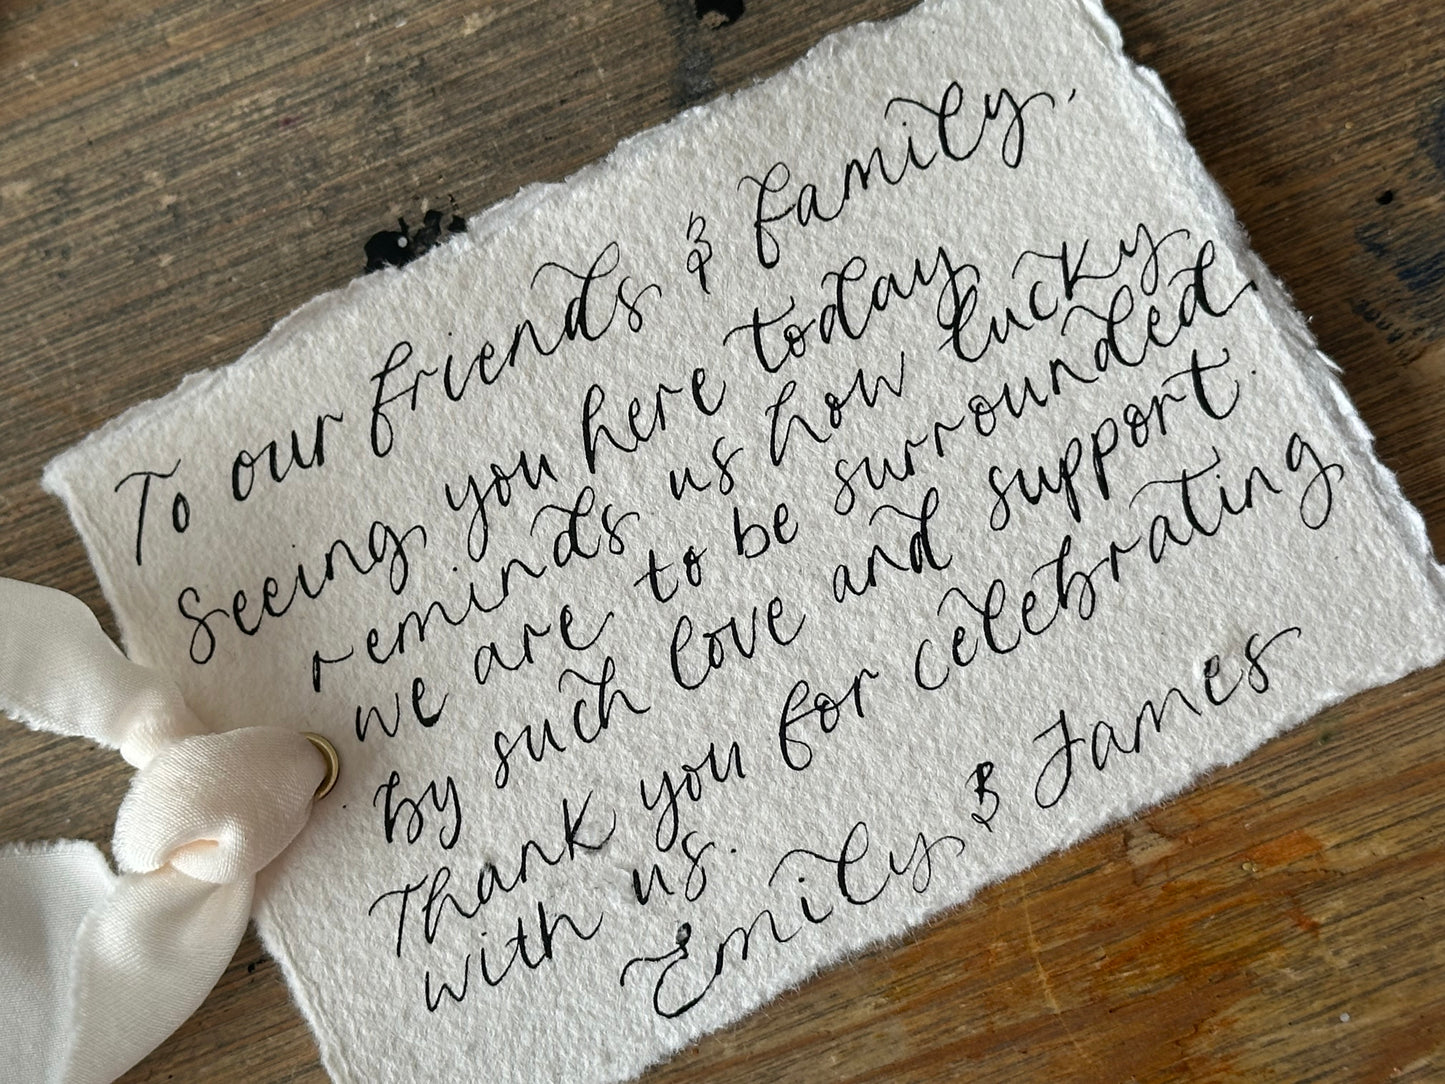 To our friends & family,
Seeing you here today
reminds us how lucky
we are to be surrounded
by such love and support.
Thank you for celebrating
with us.
Emily & James